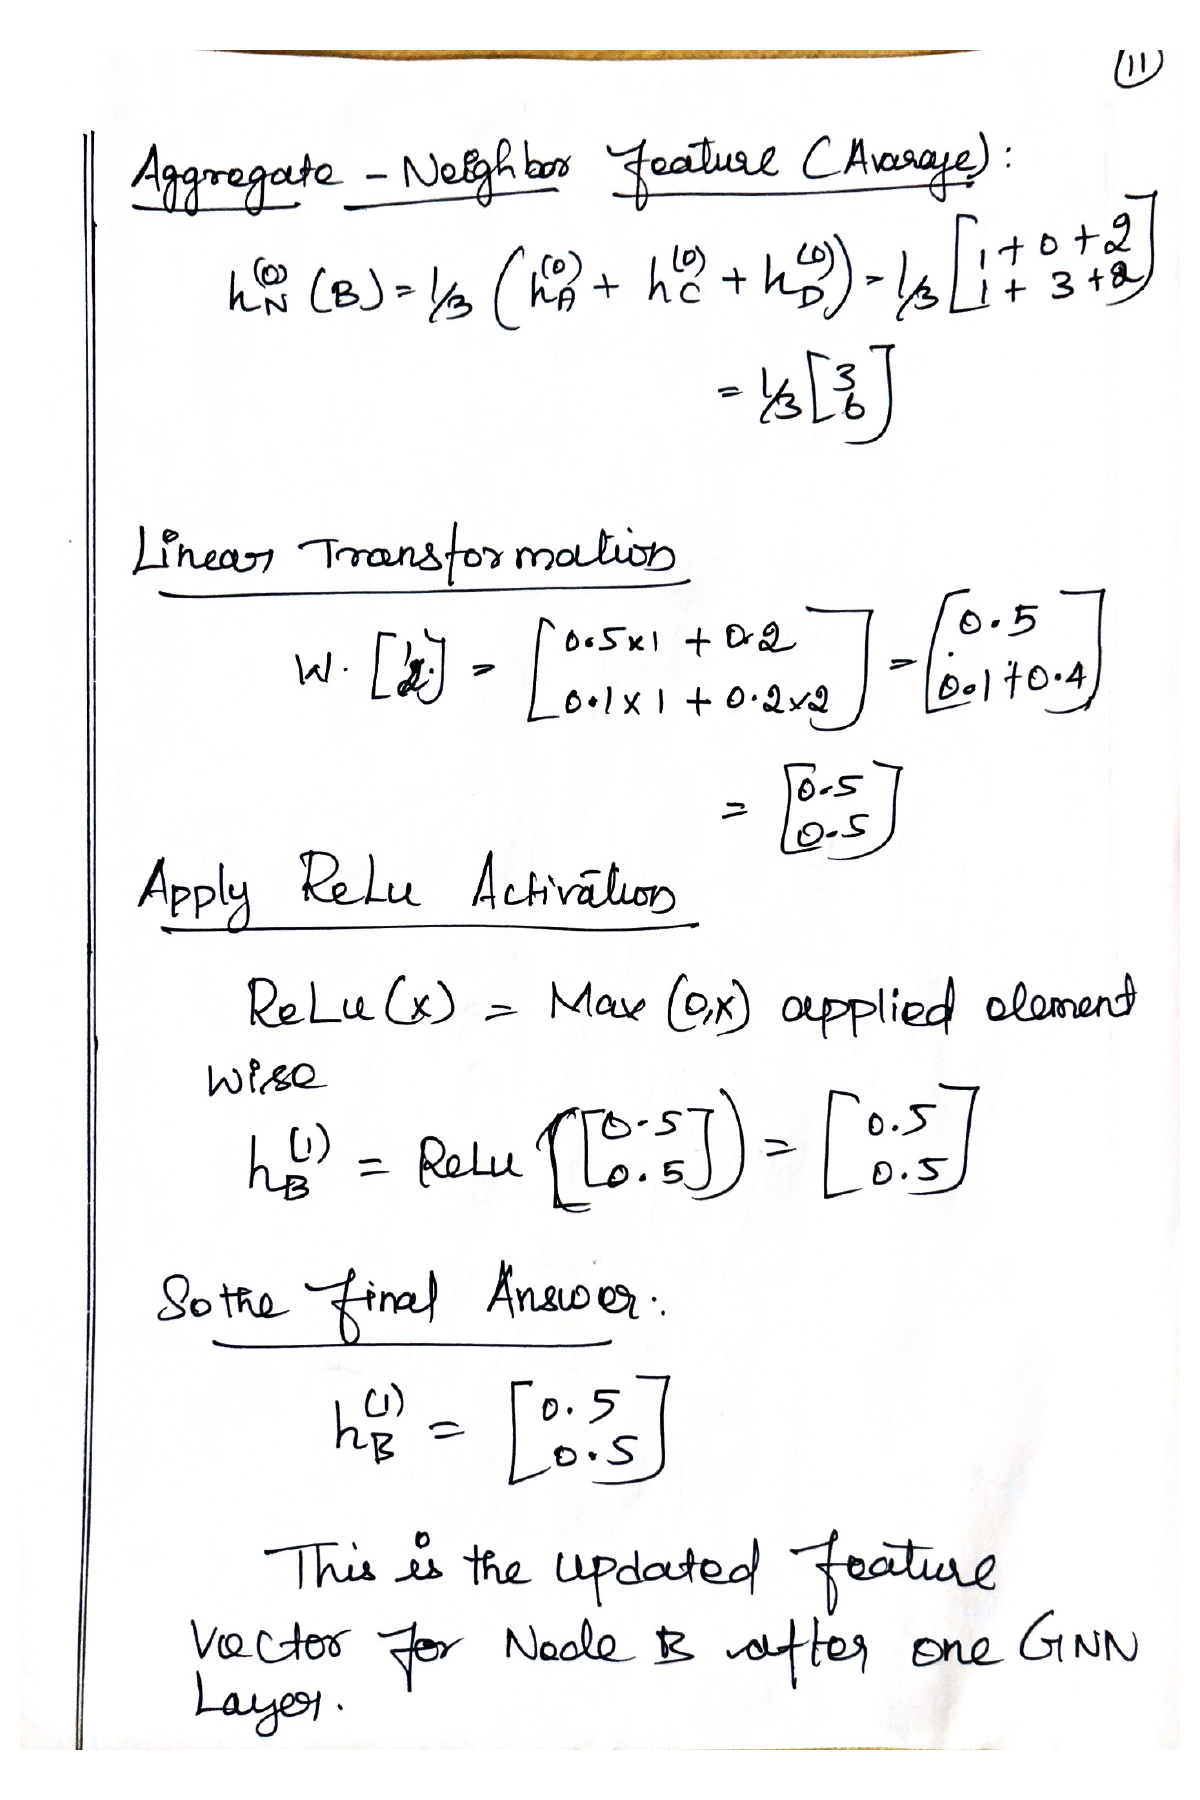 11
Aggregate - Neighbor feature (Avarage):
h_N^(0) (B) = 1/3 (h_A^(0) + h_C^(0) + h_D^(0)) = 1/3 [1+0+2
1+3+2]
= 1/3 [3
6]
Linear Transformation
W. [1
2] = [0.5x1 + 0.2
0.1x1 + 0.2x2] = [0.5
0.1+0.4]
= [0.5
0.5]
Apply ReLu Activation
ReLu(x) = Max (0,x) applied element
wise
h_B^(1) = ReLu ([0.5
0.5]) = [0.5
0.5]
So the final Answer.
h_B^(1) = [0.5
0.5]
This is the updated feature
Vector for Node B after one GNN
Layer.